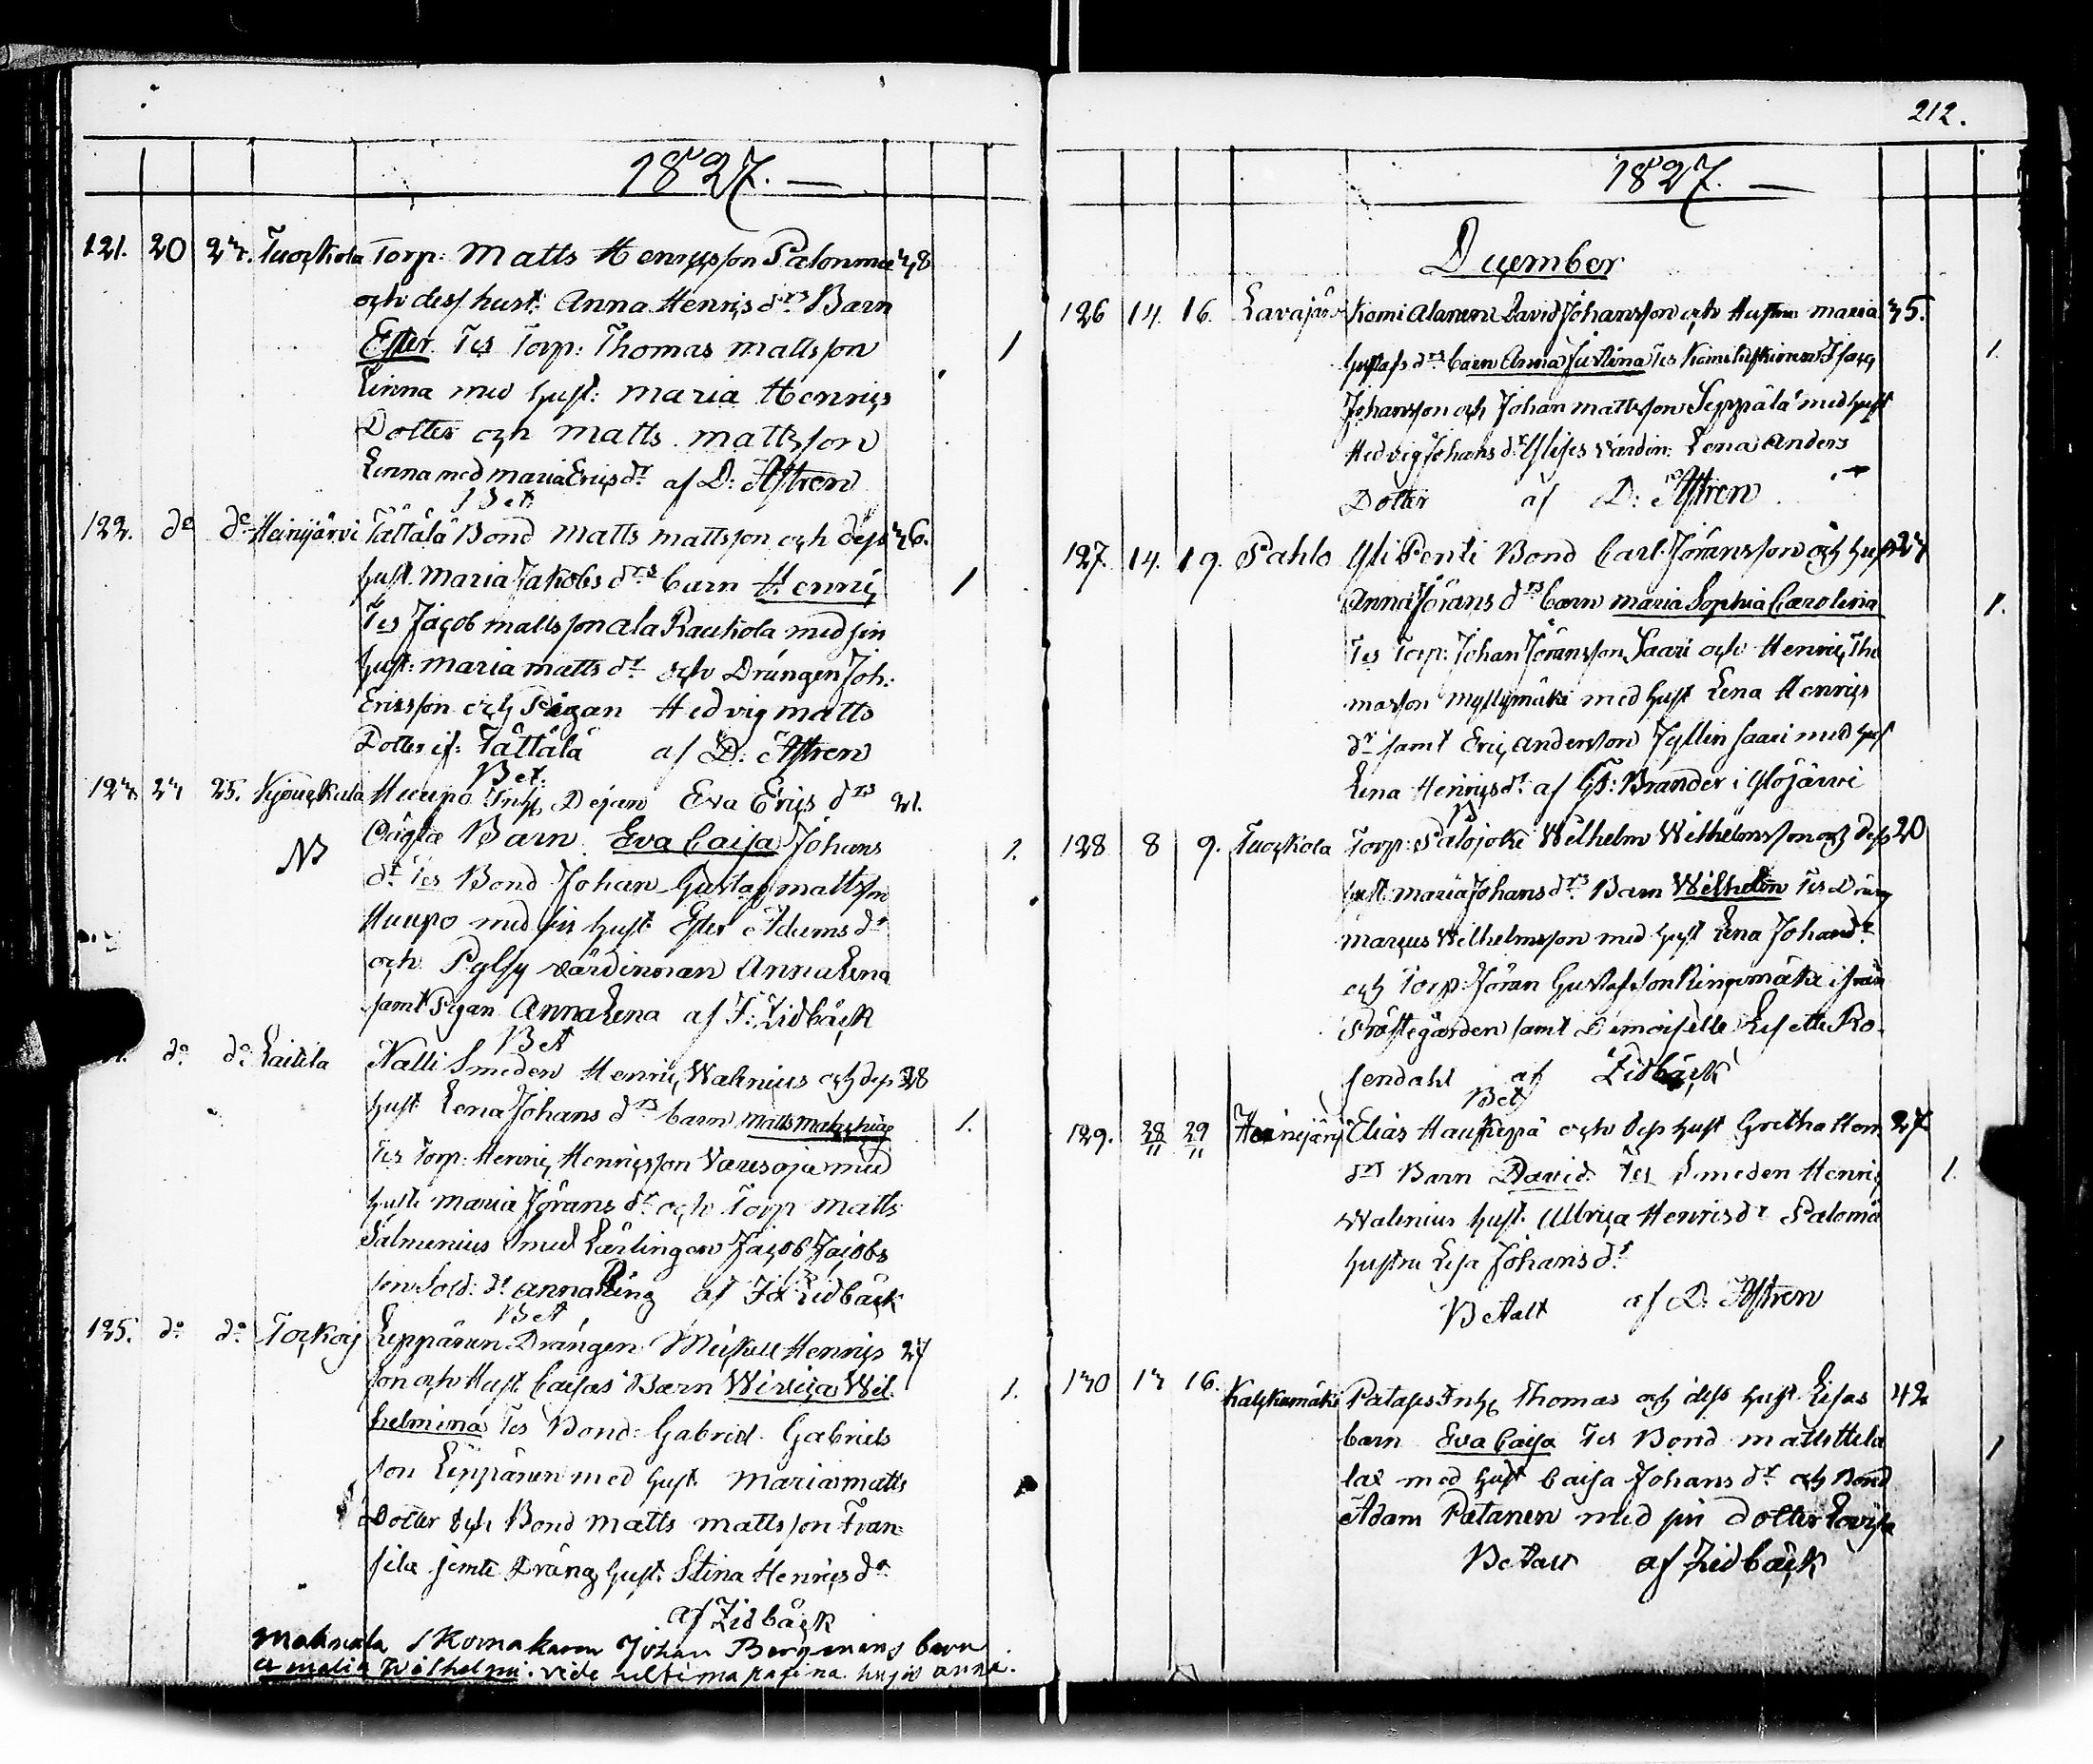 1827.
121. 20 23. Tuorkola Torp: Matts Henricsson Palonmä 38
och dess hust: Anna Henrics drs Barn
Ester Tes Torp: Thomas Mattsson 1
Linna med hust: Maria Henrics
Dotter och Matts Mattsson
Linna med Maria Erics dr af D: Aftren
Bet
122. do do Heinijärvi Tättälä Bond Matts Mattsson och dess 36.
hust. Maria Jakobs drs barn Henric 1
Tes Jacob Mattsson ala Raukola med sin
hust: Maria Matts dr och Drängen Joh:
Ericsson och Pigan Hedvig Matts
Dotter if: Tättälä af D: Aftren
Bet.
123 23 25. Huupo Inhs Dejan Eva Erics drs 21.
NB Oägta Barn Eva Caisa Johans 1.
dr Tes Bond Johan Gustaf Mattsson
Huupo med sin hust: Ester Adams dr
och värdinnan Anna Lena
samt Pigan Anna Lena af F: Lidbäck
Bet
do do Laitila Nalli Smeden Henric Walenius och dess 38
hust Lena Johans drs barn Matts 1.
Tes Torp: Henric Henricsson Varesoja med
hust: Maria Jörans dr och Torp Matts
Salmenius med Lärlingen Jacob Jacobs
son Sold: dr Anna Ring af Lidbäck
Bet
125. do do Leppänen Drängen Michell Henrics 27
son och Hust. Caisas Barn Wil- 1.
helmina Tes Bond: Gabriel Gabriels
son Leppänen med hust. Maria Matts
Dotter och Bond Matts Mattsson Fran-
sila jemte Dräng hust. Stina Henrics dr
af Lidbäck
skomakaren Johan Bergmans barn
Amalia Wilhelmi: vide ultima pagina hujus anni.
212.
1827.
December
126 14. 16. Lavajärvi Komi Alanen David Johansson och Hustru Maria 35.
Gustafs drs barn Anna Justina Tes Isac 1.
Johansson och Johan Mattsson Seppälä med hust
Hedvig Johans dr värdin: Lena Anders
Dotter af D: Aftren
127. 14. 19. Pahlo Yli Penti Bond Carl Jöransson och hust 27
Anna Jörans drs barn Maria Sophia Carolina 1.
Tes Torp: Johan Jöransson Saari och Henric Tho
masson Myllymäki med hust Lena Henrics
dr samt Eric Andersson Jyllin Saari med hust
Lena Henrics dr: af G: Brander i Ylöjärvi
128 8 9. Tuorkola Torp: Palojoki Wilhelm Wilhelmsson och dess 20
hust Maria Johans drs Barn Wilhelm Tes Dräng
Marcus Wilhelmsson med hust Lena Johans dr
och Torp: Jöran Gustafsson Ringomäki ifrån
Prästegården samt Demoiselle Lisette Ro-
sendahl af Lidbäck
Bet
129. 28 29 Heinijärvi Elias Haukippä och dess hust Gretha Hen 27
drs Barn David Tes Smeden Henric 1.
Walenius hust. Ulrica Henrics dr Salomo
hustru Lisa Johans dr
Betalt af D: Aftren
130 13 16. Kalckumäki Patapes Inhs Thomas och dess hust Lisas 42
barn Eva Caisa Tes Bond Matts Hela 1
lax med hust Caisa Johans dr och Bond
Adam Patanen med sin dotter Lovisa
Betalt af Lidbäck